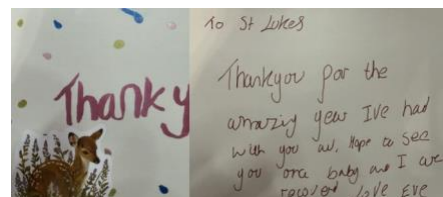 Thanky
To St Lukes
Thankyou for the
amazing year Ive had
with you all. Hope to see
you once baby and I are
recovered Love Eve